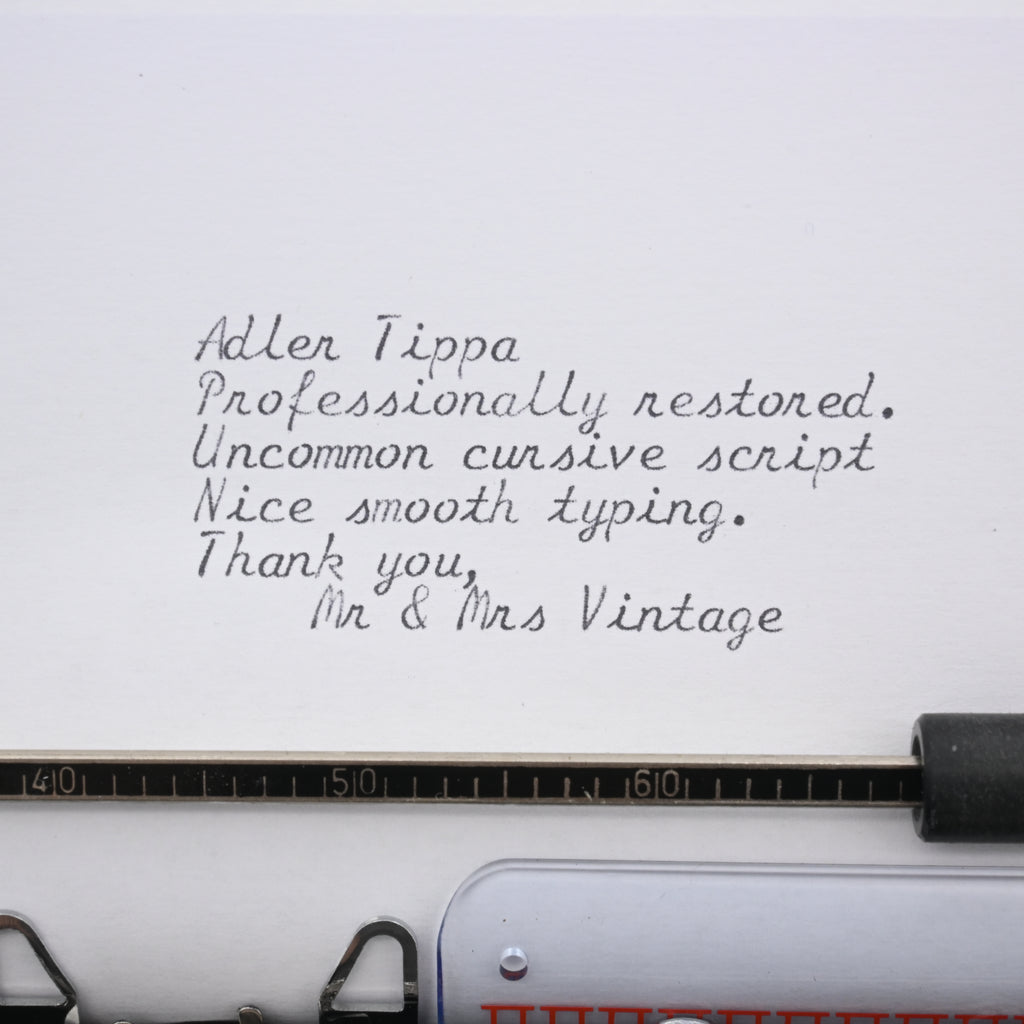 Adler Tippa
Professionally restored.
Uncommon cursive script
Nice smooth typing.
Thank you,
Mr & Mrs Vintage
40 50 60